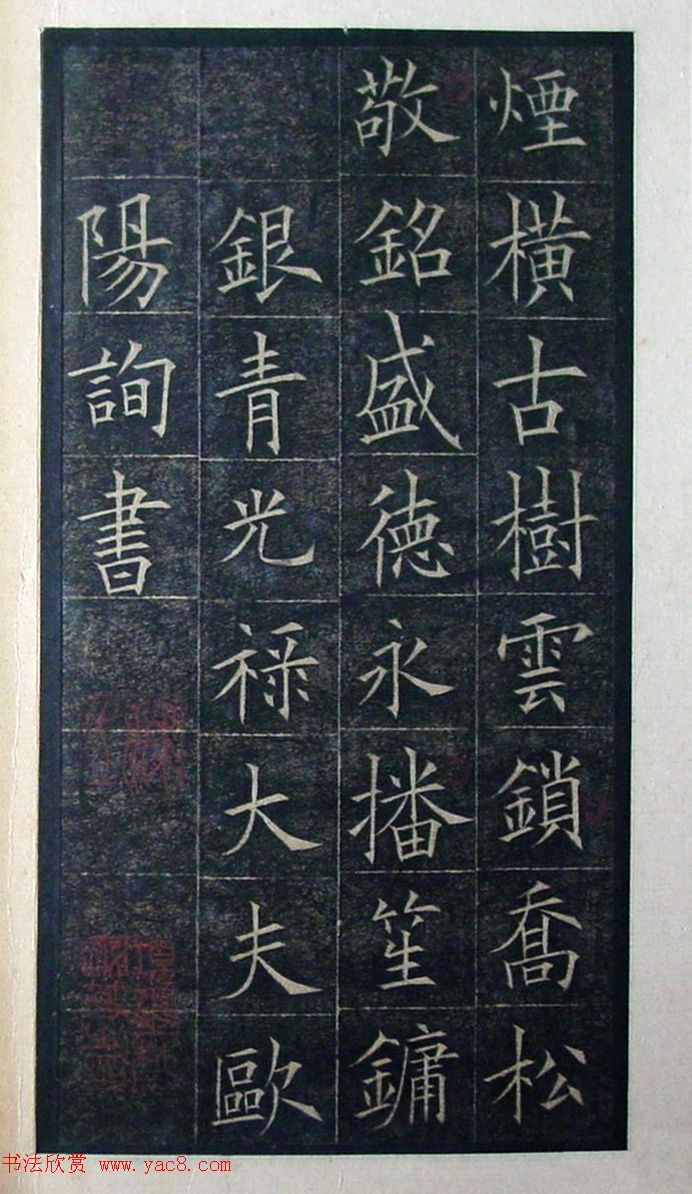 煙橫古樹雲鎖喬松
敬銘盛德永播笙鏞
銀青光祿大夫歐
陽詢書
书法欣赏 www.yac8.com